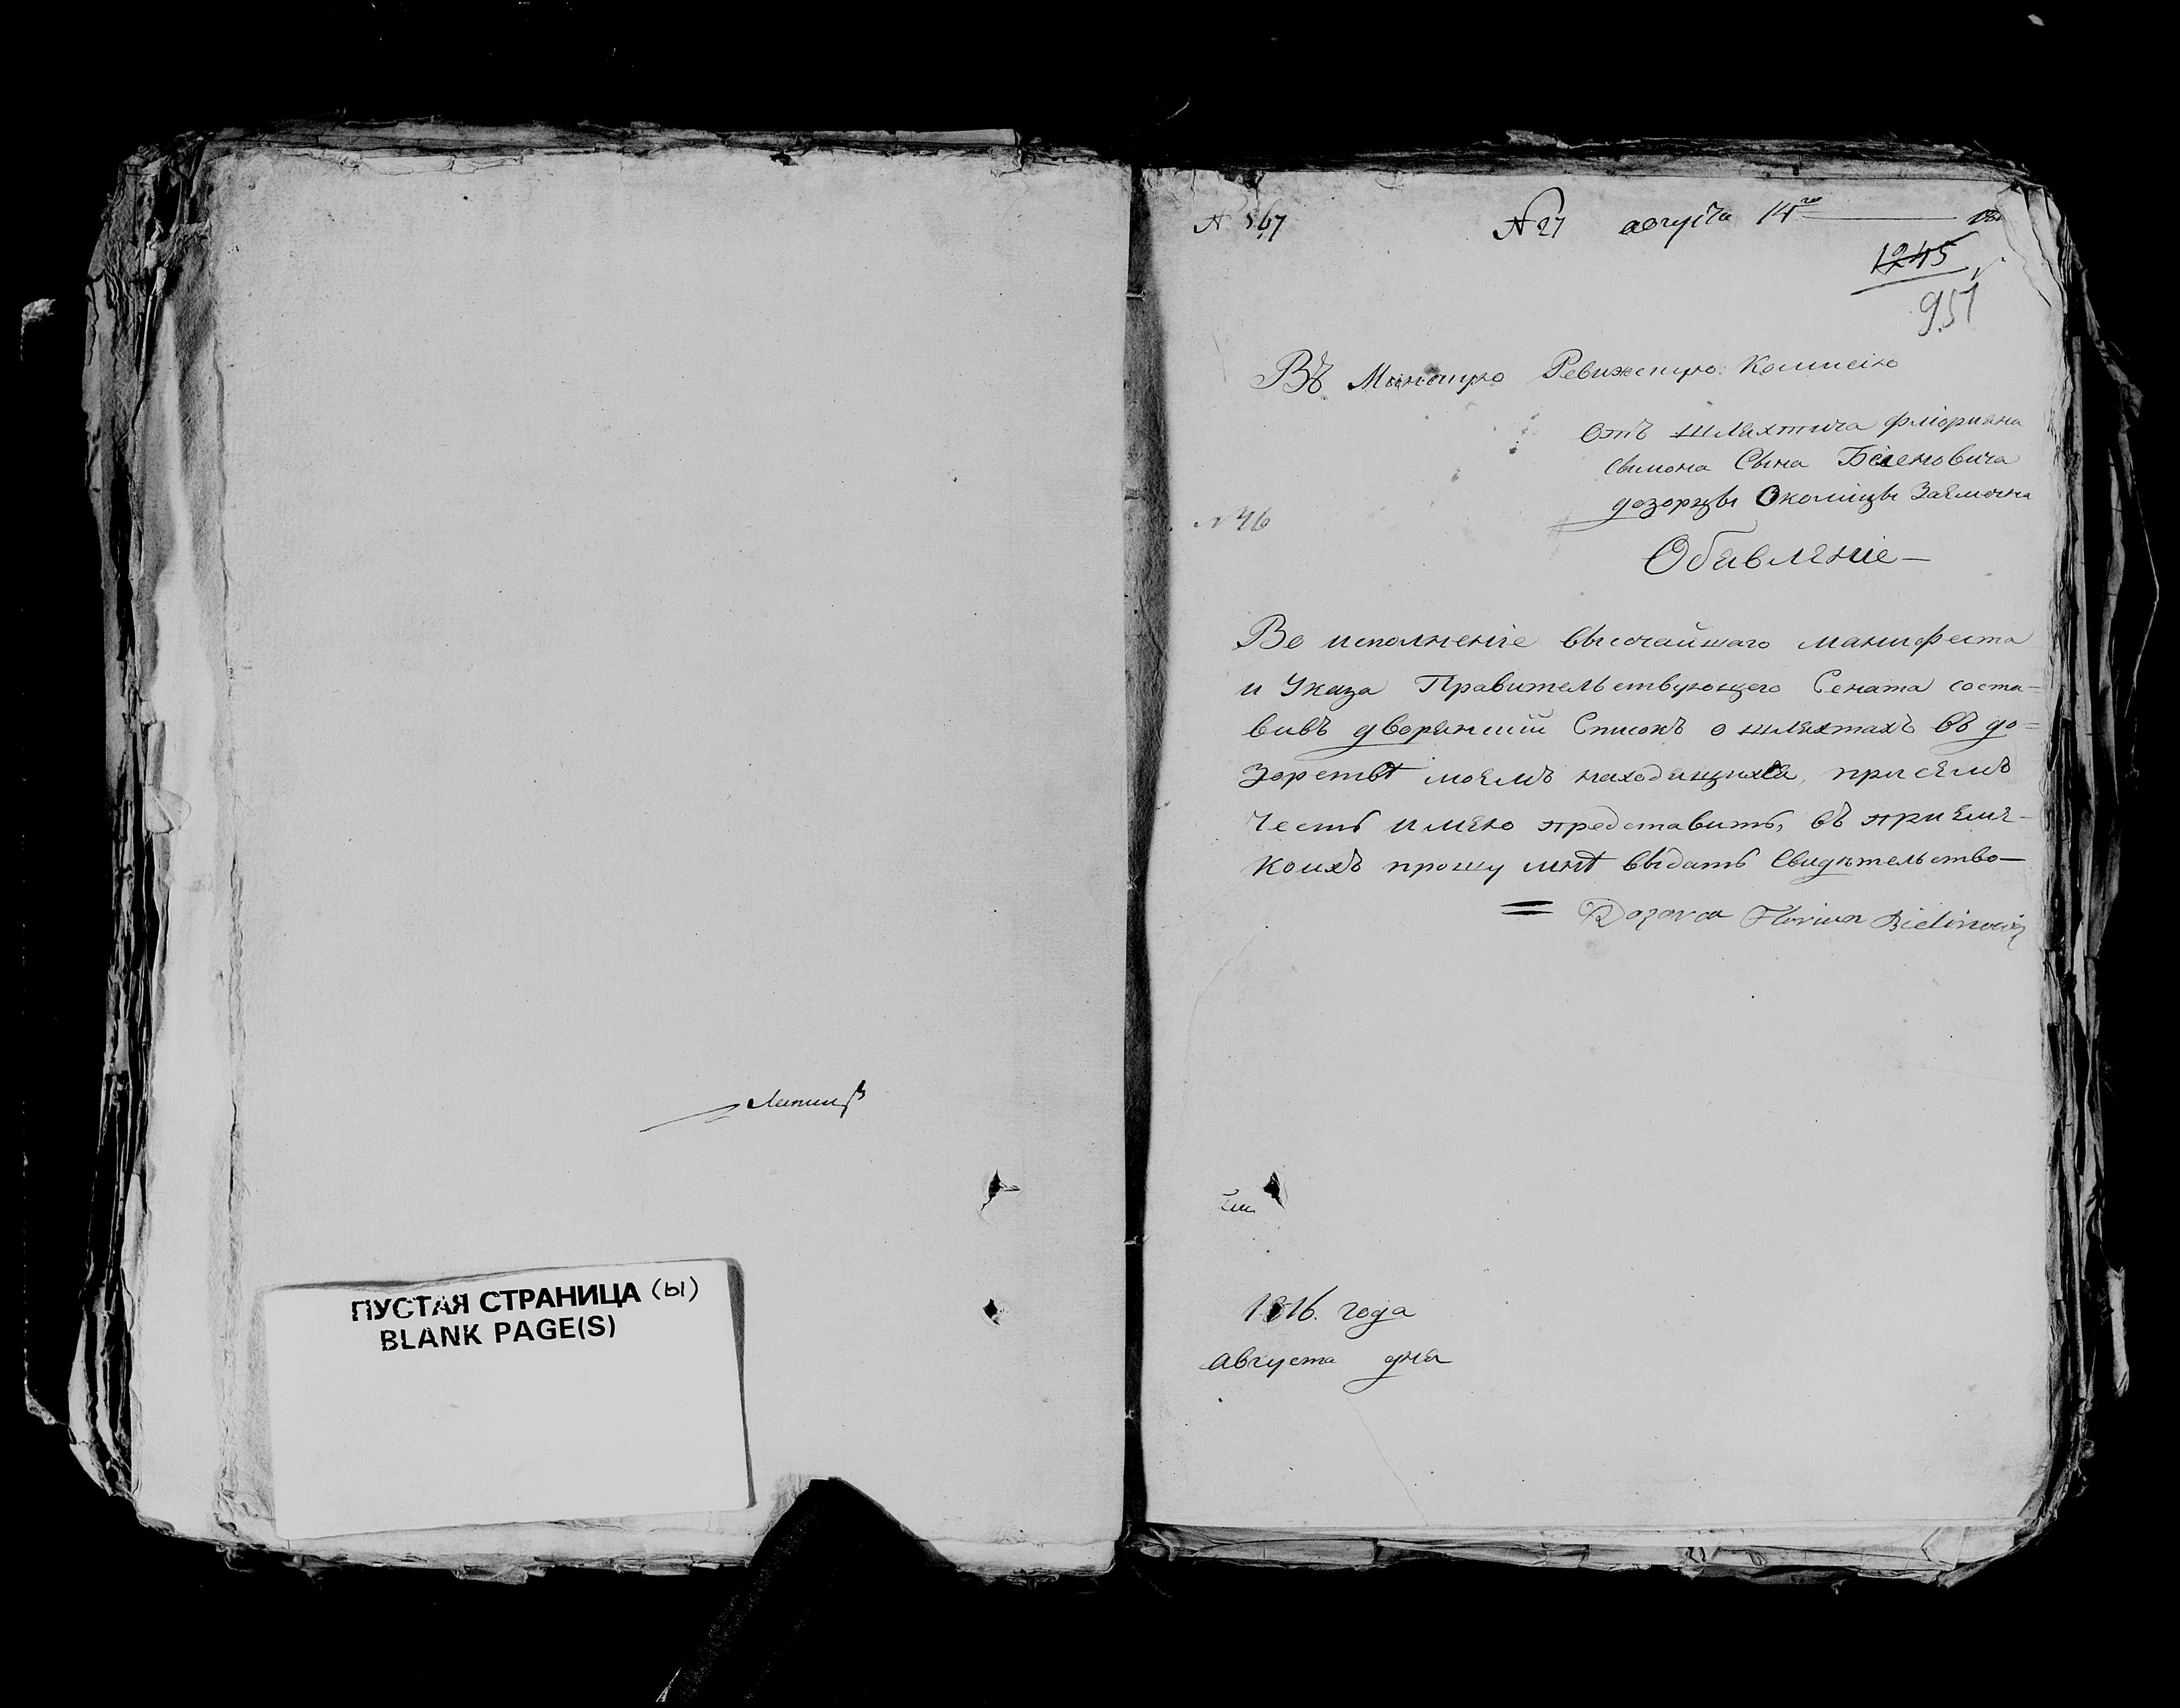 ПУСТАЯ СТРАНИЦА (ы)
BLANK PAGE(S)
№ 567 № 27 августа 14го
1245
951
Въ Минскую Ревижскую Комисию
Отъ шляхтича Флориана
Симона Сына Беленовича
дозорцы Околицы
№ 46
Обявление —
Во исполнение высочайшаго манифеста
и Указа Правительствующего Сената соста=
вивъ дворянский Списокъ о шляхтахъ въ до=
зорствѣ моемъ находящихся, при семъ
честь имею представить, въ приеме
коихъ прошу мнѣ выдать Свидѣтельство —
= Dozorca Florian Bielinowicz
1816. года
августа дня